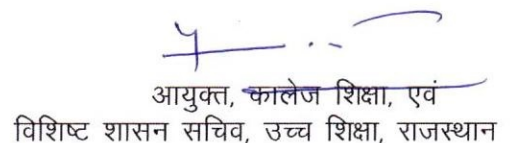 आयुक्त, कालेज शिक्षा, एवं
विशिष्ट शासन सचिव, उच्च शिक्षा, राजस्थान